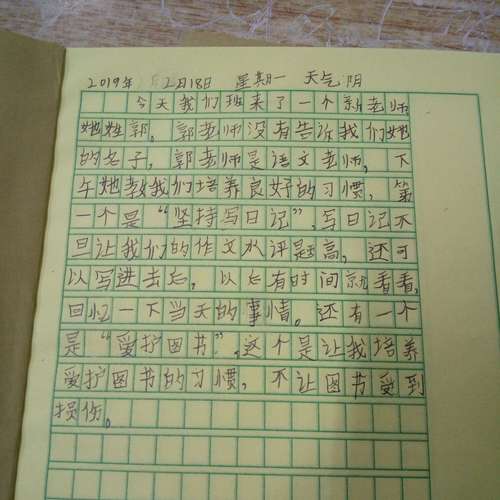 2019年 2月18日 星期一 天气阴
今天我们班来了一个新老师
她姓郭。郭老师没有告诉我们她
的名子，郭老师是语文老师，下
午她教我们培养良好的习惯，第
一个是“坚持写日记”，写日记不
旦让我们的作文水评题高，还可
以写进去后，以后有时间就看看，
回忆一下当天的事情。还有一个
是“爱护图书”，这个是让我培养
爱护图书的习惯，不让图书受到
损伤。